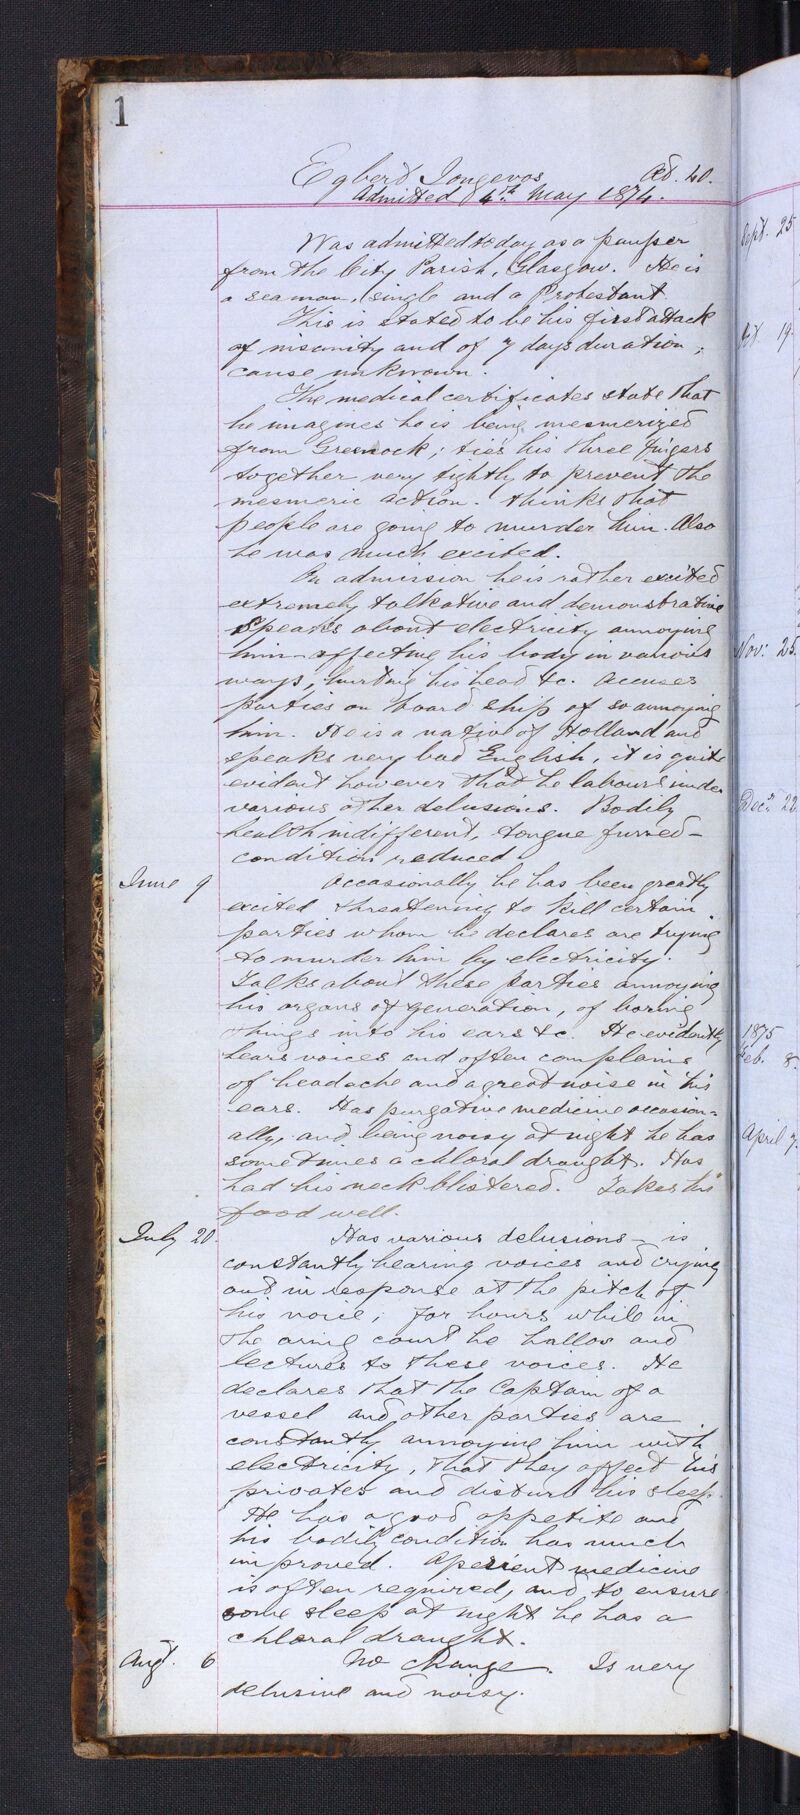 1
Egbert Jongevos Æt. 40.
Admitted 4th May 1874.
Was admitted today as a pauper
from the City Parish, Glasgow. He is
a seaman, single and a Protestant.
This is stated to be his first attack
of insanity and of 7 days duration;
cause unknown.
The medical certificates state that
he imagines he is being mesmerized
from Greenock; ties his three fingers
together very tightly to prevent the
mesmeric action. thinks that
people are going to murder him. Also
he was much excited.
On admission he is rather excited
extremely talkative and demonstrative
Speaks about electricity annoying
him - affecting his body in various
ways, hurting his head &c. Accuses
parties on board ship of so annoying
him. He is a native of Holland and
speaks very bad English, it is quite
evident however that he labours under
various other delusions. Bodily
health indifferent, tongue furred -
condition reduced.
June 9 Occasionally he has been greatly
excited threatening to kill certain
parties whom he declares are trying
to murder him by electricity.
Talks about these parties annoying
his organs of generation, of boring
things into his ears &c. He evidently
hears voices and often complains
of headache and a great noise in his
ears. Has purgative medicine occasion=
ally, and being noisy at night he has
sometimes a chloral draught. Has
had his neck blistered. Takes his
food well.
July 20. Has various delusions - is
constantly hearing voices and crying
out in response at the pitch of
his voice; for hours while in
the airing court he hallos and
lectures to these voices. He
declares that the Captain of a
vessel and other parties are
constantly annoying him with
electricity, that they affect his
privates and disturb his sleep.
He has a good appetite and
his bodily condition has much
improved. Aperient medicine
is often required, and to ensure
some sleep at night he has a
chloral draught.
Augt. 6 No change. Is very
delusive and noisy.
Sept. 25
Oct. 19
Nov: 25.
Decr. 22
1875
Feb. 8.
April 7.